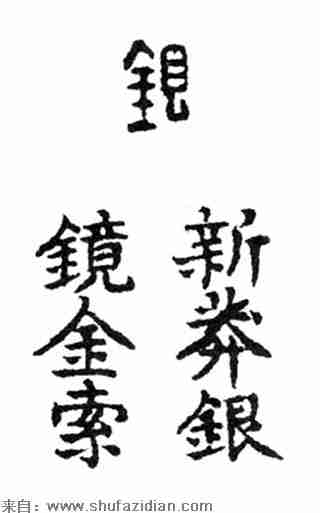 銀
新莽銀
鏡金索
来自：www.shufazidian.com